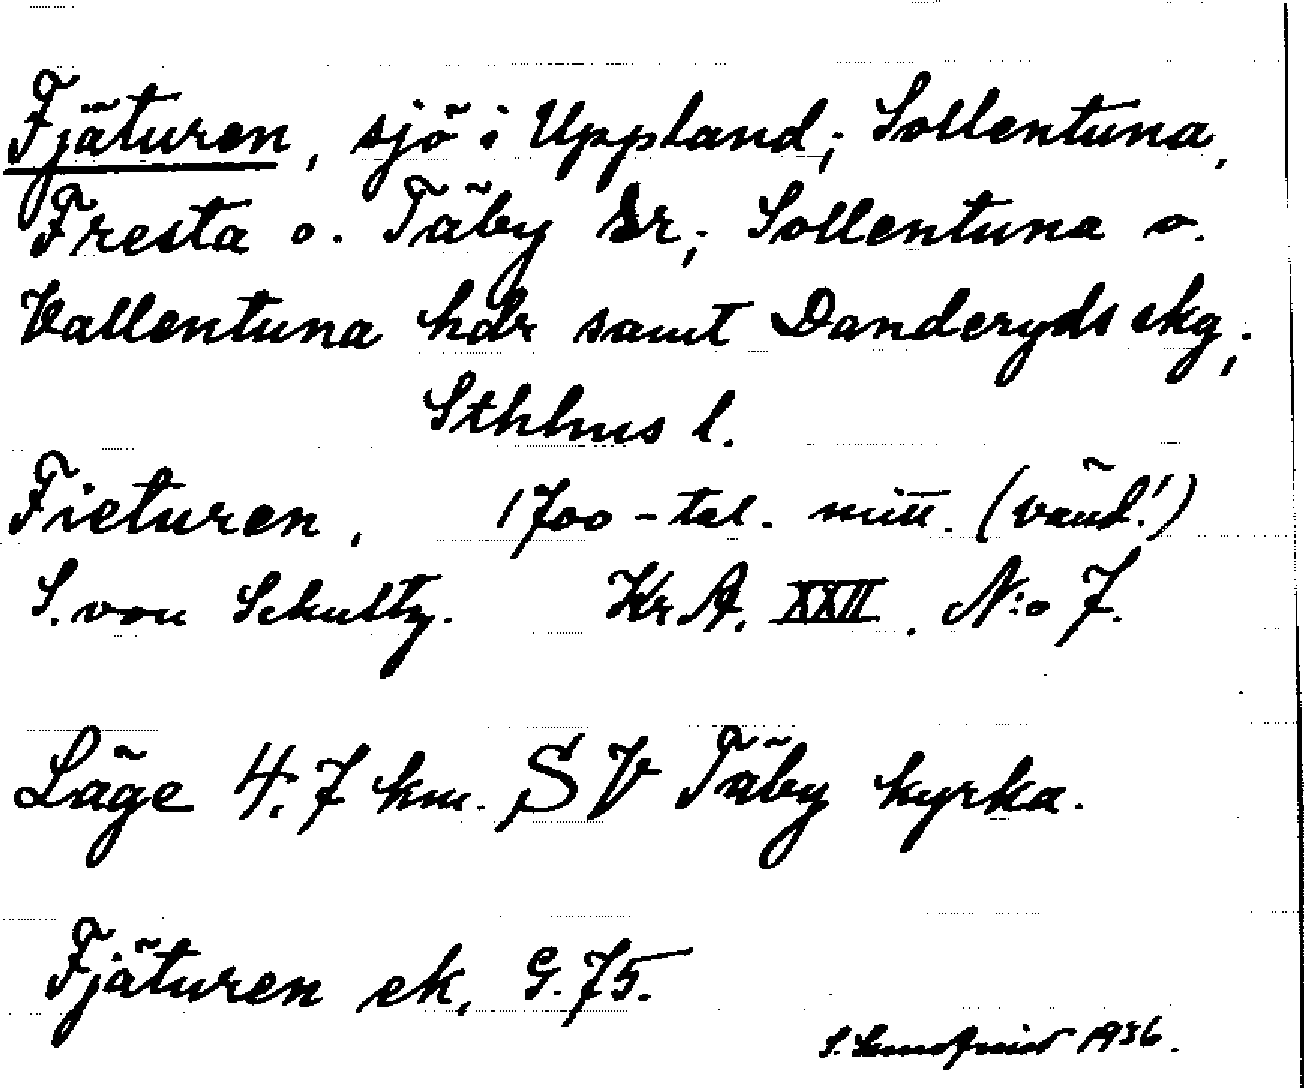 Fjäturen, sjö i Uppland; Sollentuna,
Fresta o. Täby sr; Sollentuna o.
Vallentuna hdr samt Danderyds skg;
Sthlms l.
Fieturen, 1700-tal. mitt. (vänd!)
S. von Schultz. Kr.A. XXII. N:o 7.
Läge 4.7 km. SV Täby kyrka.
Fjäturen ek. G. 75.
S. 1936.